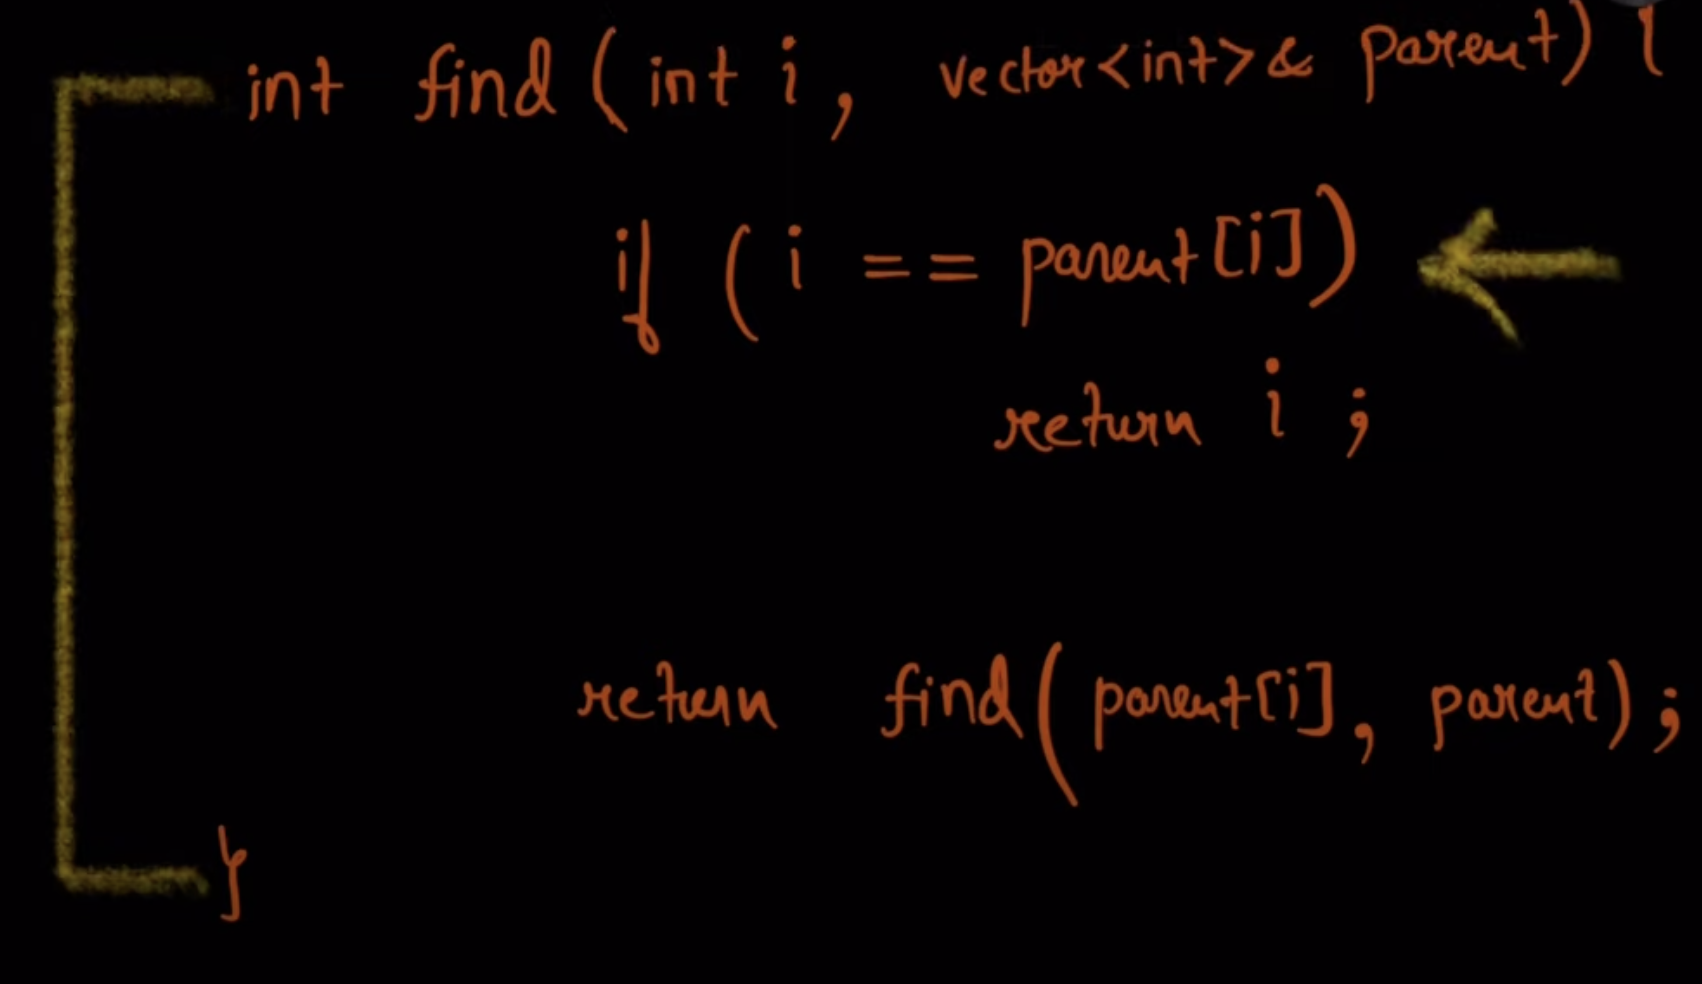 int find ( int i , vector<int>& parent) {
if ( i == parent[i])
return i ;
return find( parent[i], parent) ;
}